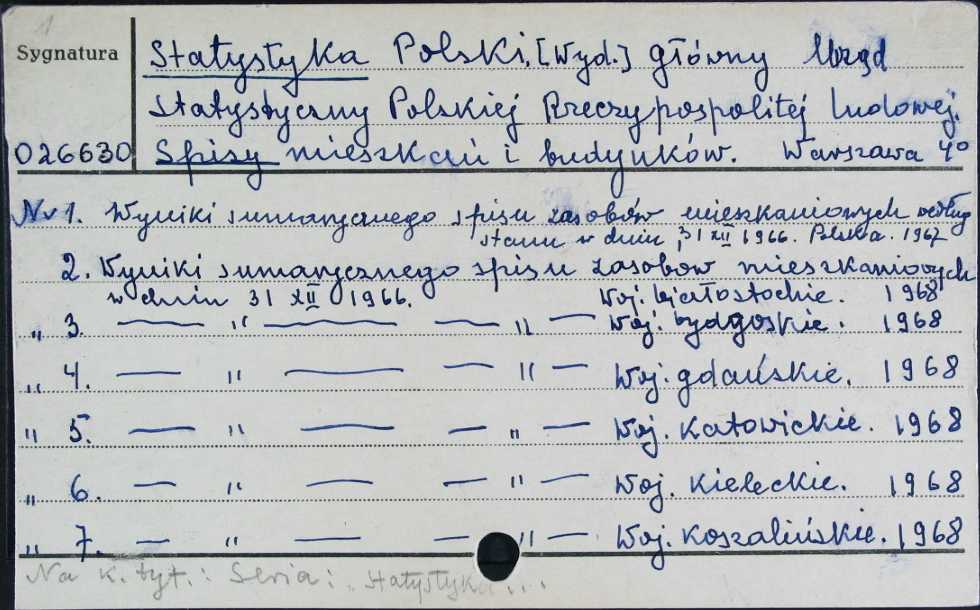 1
Sygnatura
Statystyka Polski. [Wyd.] Główny Urząd
Statystyczny Polskiej Rzeczypospolitej Ludowej.
026630 Spisy mieszkań i budynków. Warszawa 4º
Nr 1. Wyniki sumarycznego spisu zasobów mieszkaniowych według
stanu w dniu 31 XII 1966. Polska. 1967
2. Wyniki sumarycznego spisu zasobów mieszkaniowych
w dniu 31 XII 1966. Woj. białostockie. 1968
„ 3. — " — — " — Woj. bydgoskie. 1968
„ 4. — " — — " — Woj. gdańskie. 1968
" 5. — " — — " — Woj. katowickie. 1968
„ 6. — " — — " — Woj. kieleckie. 1968
„ 7. — " — — " — Woj. koszalińskie. 1968
Na k. tyt.: Seria: „Statystyka...